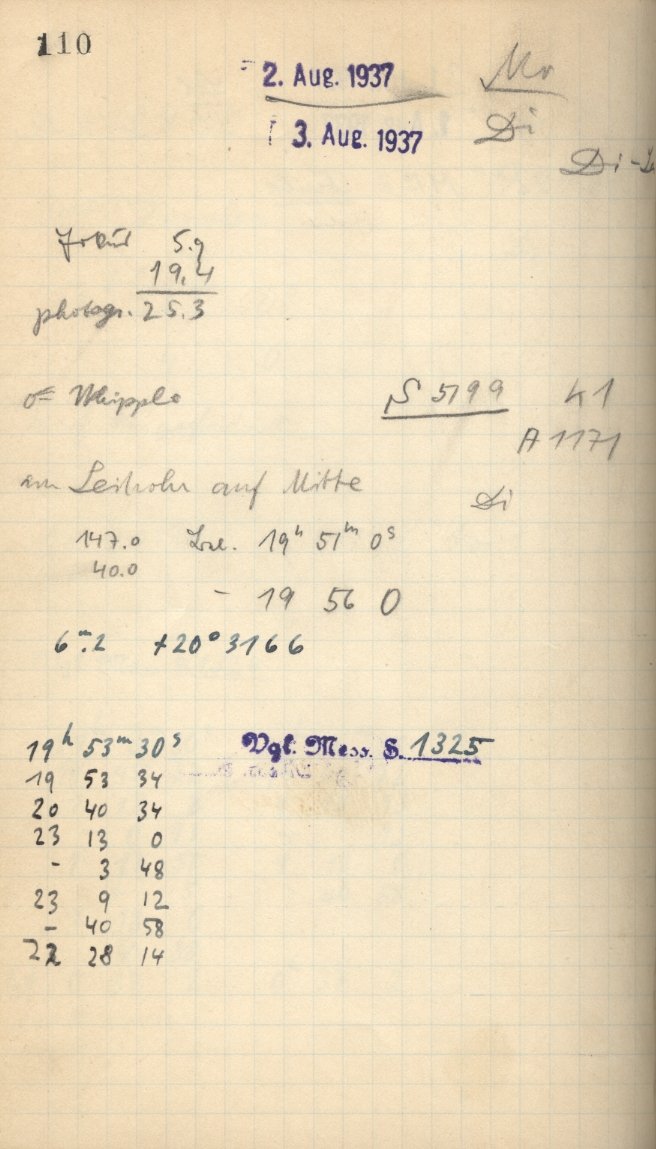 110
2. Aug. 1937 Mo
3. Aug. 1937 Di
Di -
Fokus 5.9
19.4
photogr. 25.3
σ= Whipple S 5199 k1
A 1171
am Leitrohr auf Mitte
Di
147.0 19ʰ 51ᵐ 0ˢ
40.0
- 19 56 0
6ᵐ.2 +20° 3166
19ʰ 53ᵐ 30ˢ Vgl. Mess. S. 1325
19 53 34
20 40 34
23 13 0
- 3 48
23 9 12
- 40 58
22 28 14